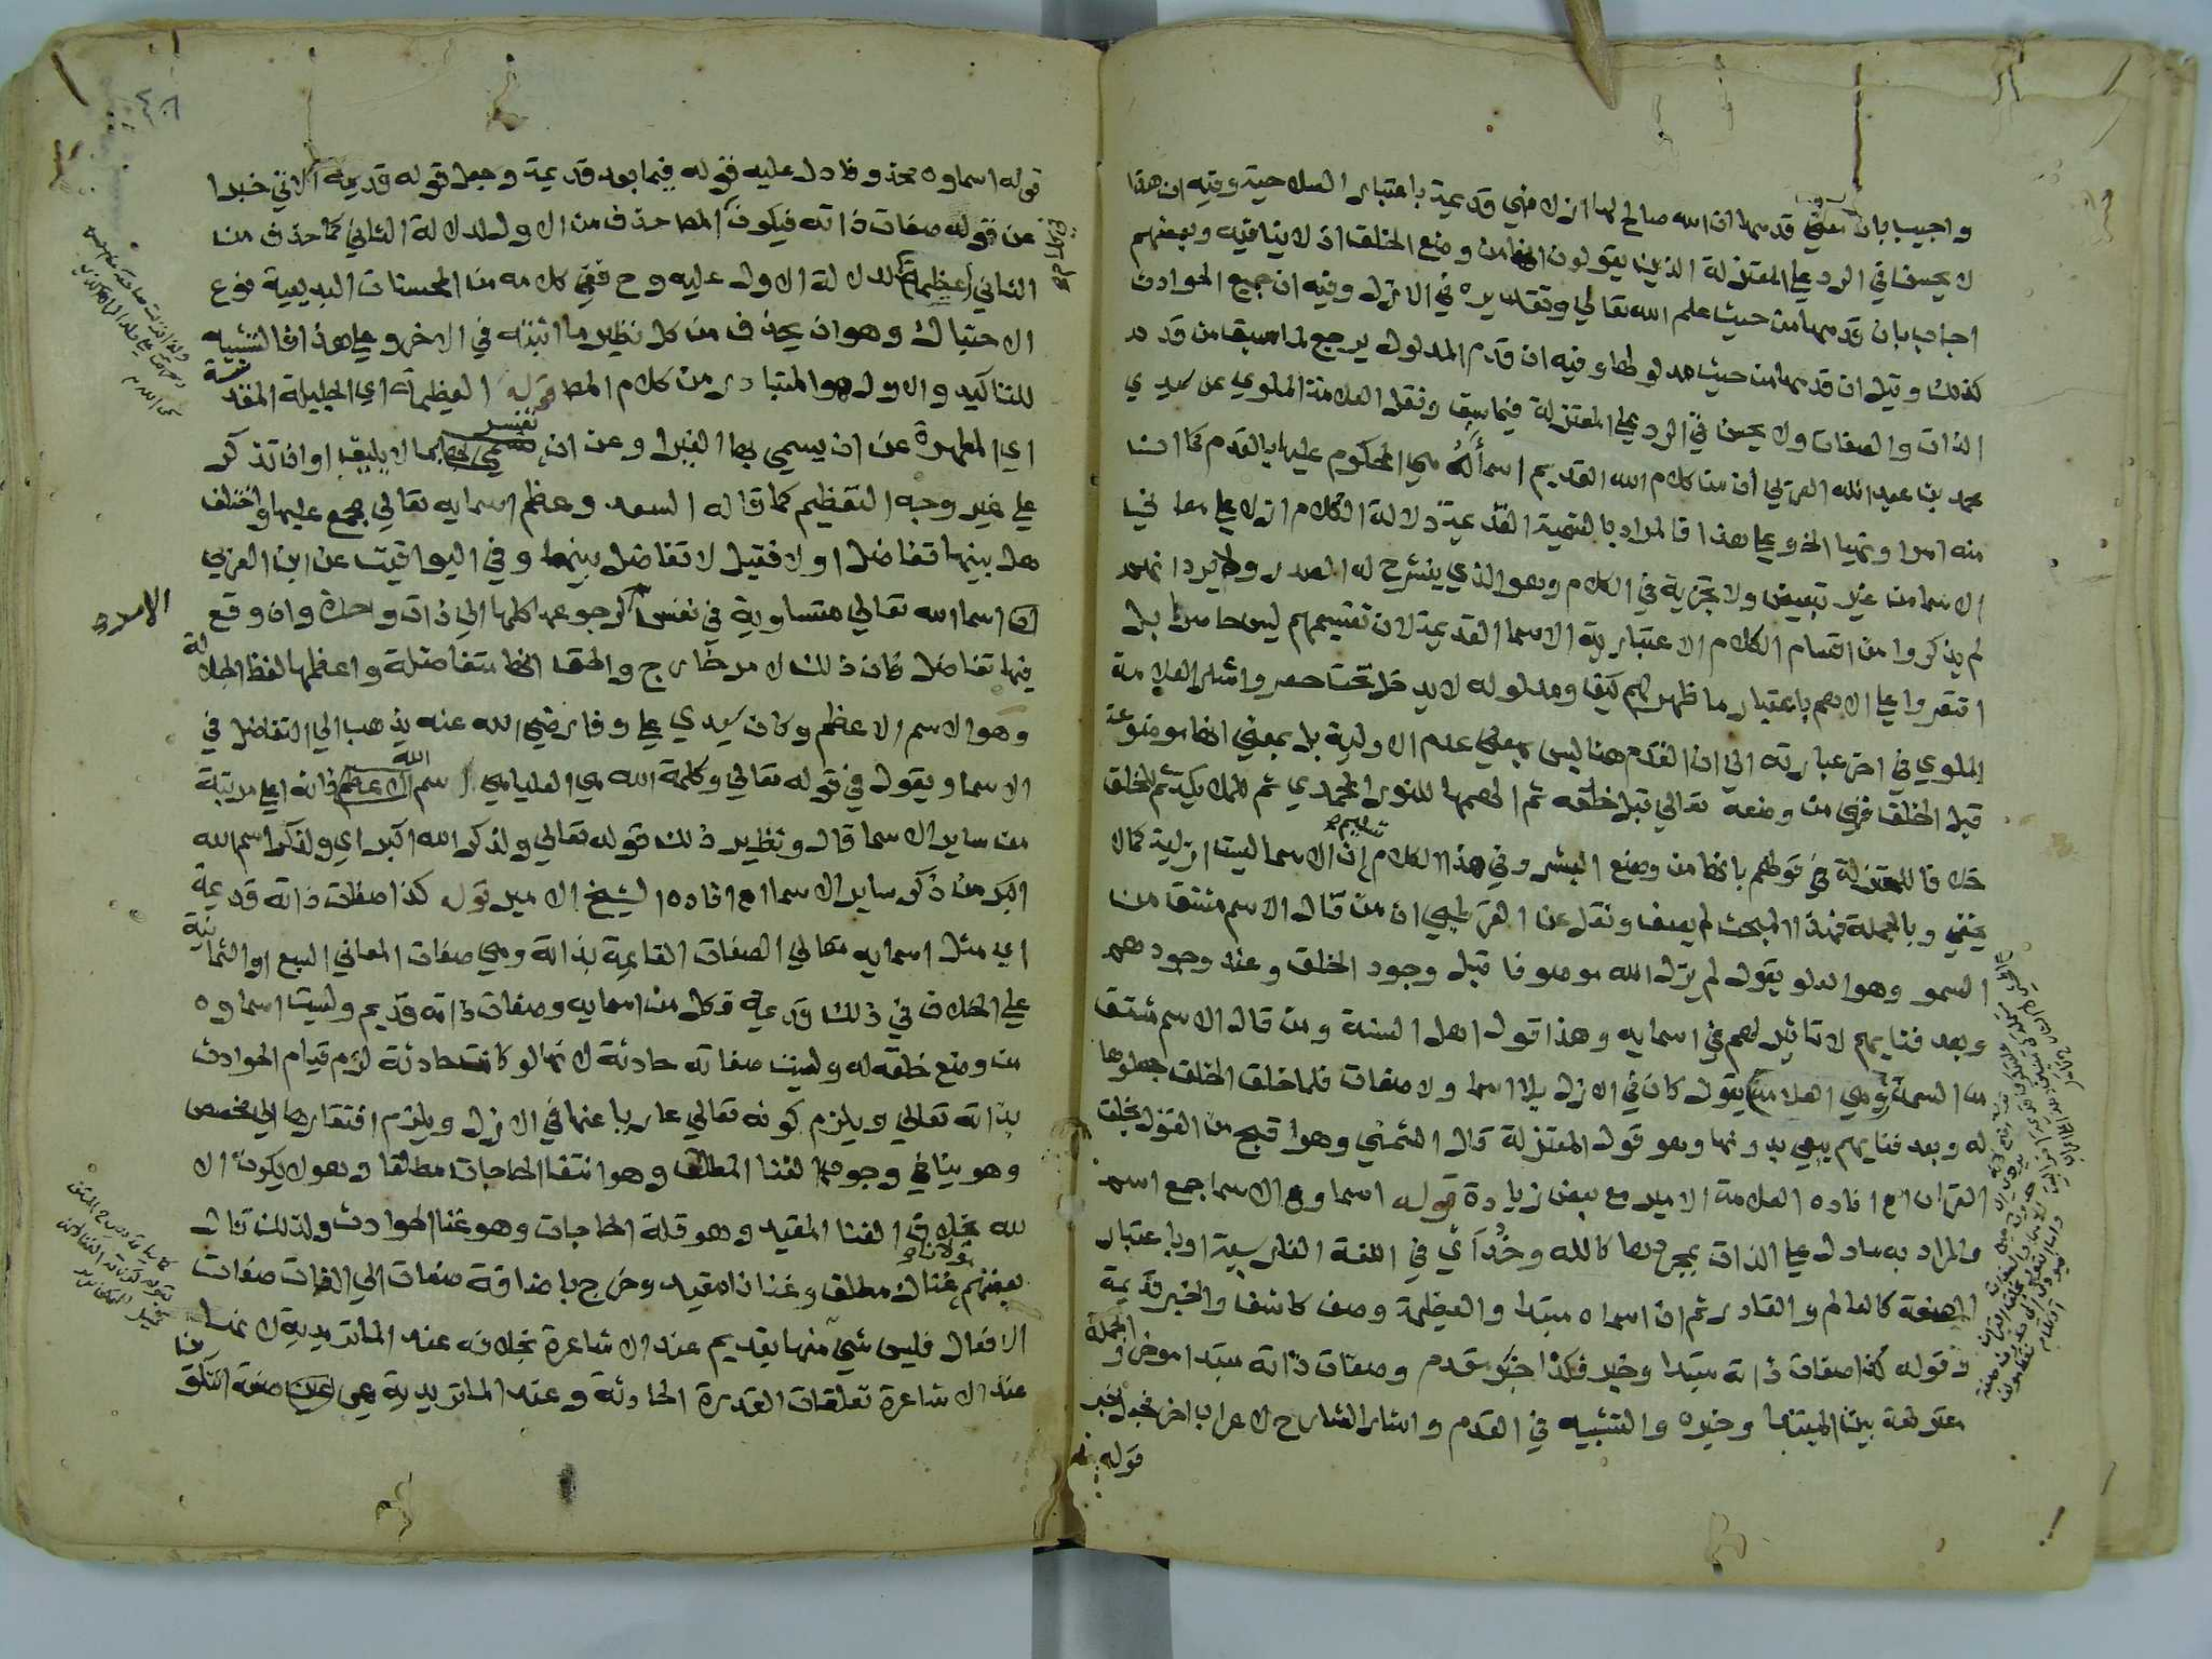 واجيب بان معني قدمها ان الله صالح لها ازلا فهي قديمة باعتبار الصلاحية وفيه ان هذا
لا يحسن في الرد علي المعتزلة الذين يقولون انها من وضع الخلق اذ لا ينافيه وبعضهم
اجاب بان قدمها من حيث علم الله تعالي وتقديره في الازل وفيه ان جميع الحوادث
كذلك وقيل ان قدمها من حيث مدلولها وفيه ان قدم المدلول يرجع لما سبق من قدم
الذات والصفات ولا يحسن في الرد علي المعتزلة فيما سبق ونقل العلامة الملوي عن سيدي
محمد بن عبد الله المغربي ان من كلام الله القديم اسما له هي المحكوم عليها بالقدم كما ان
منه امرا ونهيا الخ وعلي هذا فالمراد بالتسمية القديمة دلالة الكلام ازلا علي معاني
الاسما من غير تبعيض ولا تجزية في الكلام وهو الذي ينشرح له الصدر ولا يرد انهم
لم يذكروا من اقسام الكلام الاعتبارية الاسما القديمة لان تقسيمهم ليس حاصرا بل
اقتصروا علي الاهم باعتبار ما ظهر لهم كيف ومدلوله لا يدخل تحت حصر واشار العلامة
الملوي في اخر عبارته الي ان القدم هنا ليس بمعني عدم الاولية بل بمعني انها موضوعة
قبل الخلق فهي من وضعه تعالي قبل خلقه ثم الهمها للنور المحمدي ثم للملايكة ثم للخلق
خلافا للمعتزلة في قولهم بانها من وضع البشر وفي هذا الكلام تسليم ان الاسما ليست ازلية كما لا
يخفي وبالجملة فهذا المبحث لم يصف ونقل عن القرطبي ان من قال الاسم مشتق من
السمو وهو العلو يقول لم يزل الله موصوفا قبل وجود الخلق وعند وجودهم
وبعد فنايهم لا تاثير لهم في اسمايه وهذا قول اهل السنة ومن قال الاسم مشتق
من السمة وهي العلامة يقول كان في الازل بلا اسما ولا صفات فلما خلق الخلق جعلوها
له وبعد فنايهم يبقي بدونها وهو قول المعتزلة قال الشمني وهو اقبح من القول بخلق
القران اه افاده العلامة الامير مع بعض زيادة قوله اسماوه الاسما جمع اسم
والمراد به ما دل علي الذات بمجردها كالله وخداي في اللغة الفارسية او باعتبار
الصفة كالعالم والقادر ثم ان اسماه مبتدا والعظيمة وصف كاشف والخبر قديمة
وقوله كذا صفات ذاته مبتدا وخبر فكذا خبر مقدم وصفات ذاته مبتدا موخر والجملة
معترضة بين المبتدا وخبره والتشبيه في القدم واشار الشارح لاعراب اخر فجعل خبر
قوله
قوله اسماوه محذوفا دل عليه قوله فيما بعد قديمة وجعل قوله قديمة الاتي خبرا
عن قوله صفات ذاته فيكون المصـ حذف من الاول لدلالة الثاني كما حذف من
الثاني العظيمة لدلالة الاول عليه وح ففي كلامه من المحسنات البديعية نوع
الاحتباك وهو ان يحذف من كل نظير ما اثبته في الاخر وعلي هذا فالتشبيه
للتاكيد والاول هو المتبادر من كلام المصـ قوله العظيمة اي الجليلة المقدسة
اي المطهرة عن ان يسمي بها الغير او عن ان تفسر بما لا يليق او ان تذكر
علي غير وجه التعظيم كما قاله السعد وعظم اسمايه تعالي مجمع عليها واختلف
هل بينها تفاضل او لا فقيل لا تفاضل بينها وفي اليواقيت عن ابن العربي
ان اسما الله تعالي متساوية في نفس الامر لرجوعها كلها الي ذات واحدة وان وقع
فيها تفاضل فان ذلك لامر خارج والحق انها متفاضلة واعظمها لفظ الجلالة
وهو الاسم الاعظم وكان سيدي علي وفا رضي الله عنه يذهب الي التفاضل في
الاسما ويقول في قوله تعالي وكلمة الله هي العليا هي اسم الله فانه اعلي مرتبة
من ساير الاسما قال ونظير ذلك قوله تعالي ولذكر الله اكبر اي ولذكر اسم الله
اكبر من ذكر ساير الاسما اه افاده الشيخ الامير قوله كذا صفات ذاته قديمة
اي مثل اسمايه تعالي الصفات القايمة بذاته وهي صفات المعاني السبع او الثمانية
علي الخلاف في ذلك قديمة فكل من اسمايه وصفات ذاته قديم وليست اسماوه
من وضع خلقه له وليست صفاته حادثة لانها لو كانت حادثة لزم قيام الحوادث
بذاته تعالي ويلزم كونه تعالي عاريا عنها في الازل ويلزم افتقارها الي مخصص
وهو ينافي وجوب الغنا المطلق وهو انتفا الحاجات مطلقا وهو لا يكون الا
لله بخلاف الغنا المقيد وهو قلة الحاجات وهو غنا الحوادث ولذلك قال
بعضهم غنا مولانا مطلق وغنانا مقيد وخرج باضافة صفات الي الذات صفات
الافعال فليس شي منها بقديم عند الاشاعرة بخلافه عند الماتريدية لانها
عند الاشاعرة تعلقات القدرة الحادثة وعند الماتريدية هي عين صفة التكوين